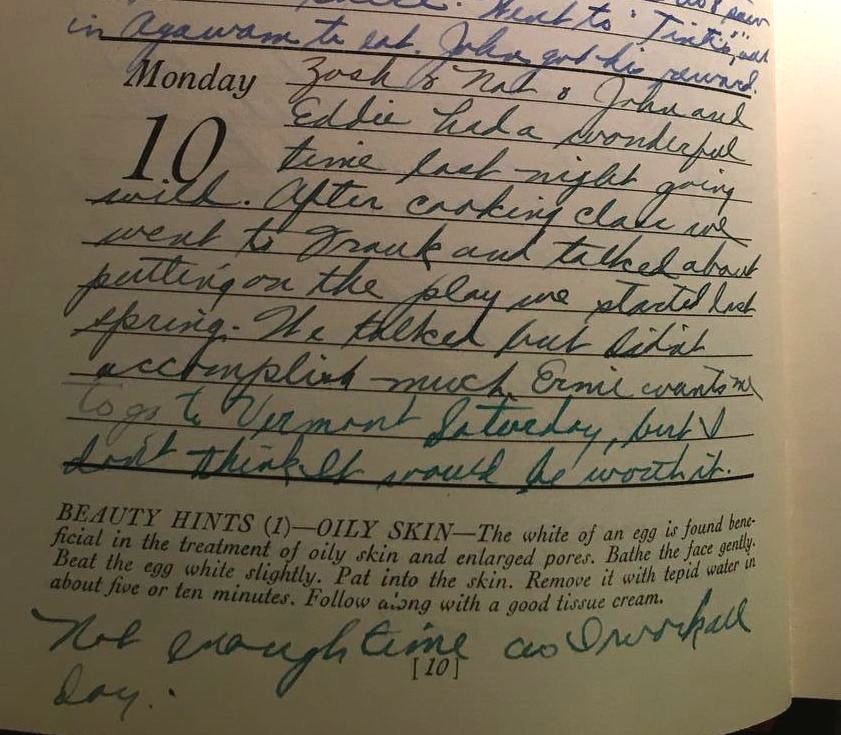 Went to "Tinti's" out
in Agawam to eat. John got his reward.
Monday
Zosh & Nat & John and
10
Eddie had a wonderful
time last night going
wild. After cooking class we
went to Frank and talked about
putting on the play we started last
spring. We talked but didn't
accomplish much. Ernie wants me
to go to Vermont Saturday, but I
don't think It would be worth it.
BEAUTY HINTS (1)—OILY SKIN—The white of an egg is found bene-
ficial in the treatment of oily skin and enlarged pores. Bathe the face gently.
Beat the egg white slightly. Pat into the skin. Remove it with tepid water in
about five or ten minutes. Follow along with a good tissue cream.
Not enough time as I work all
[10]
day.